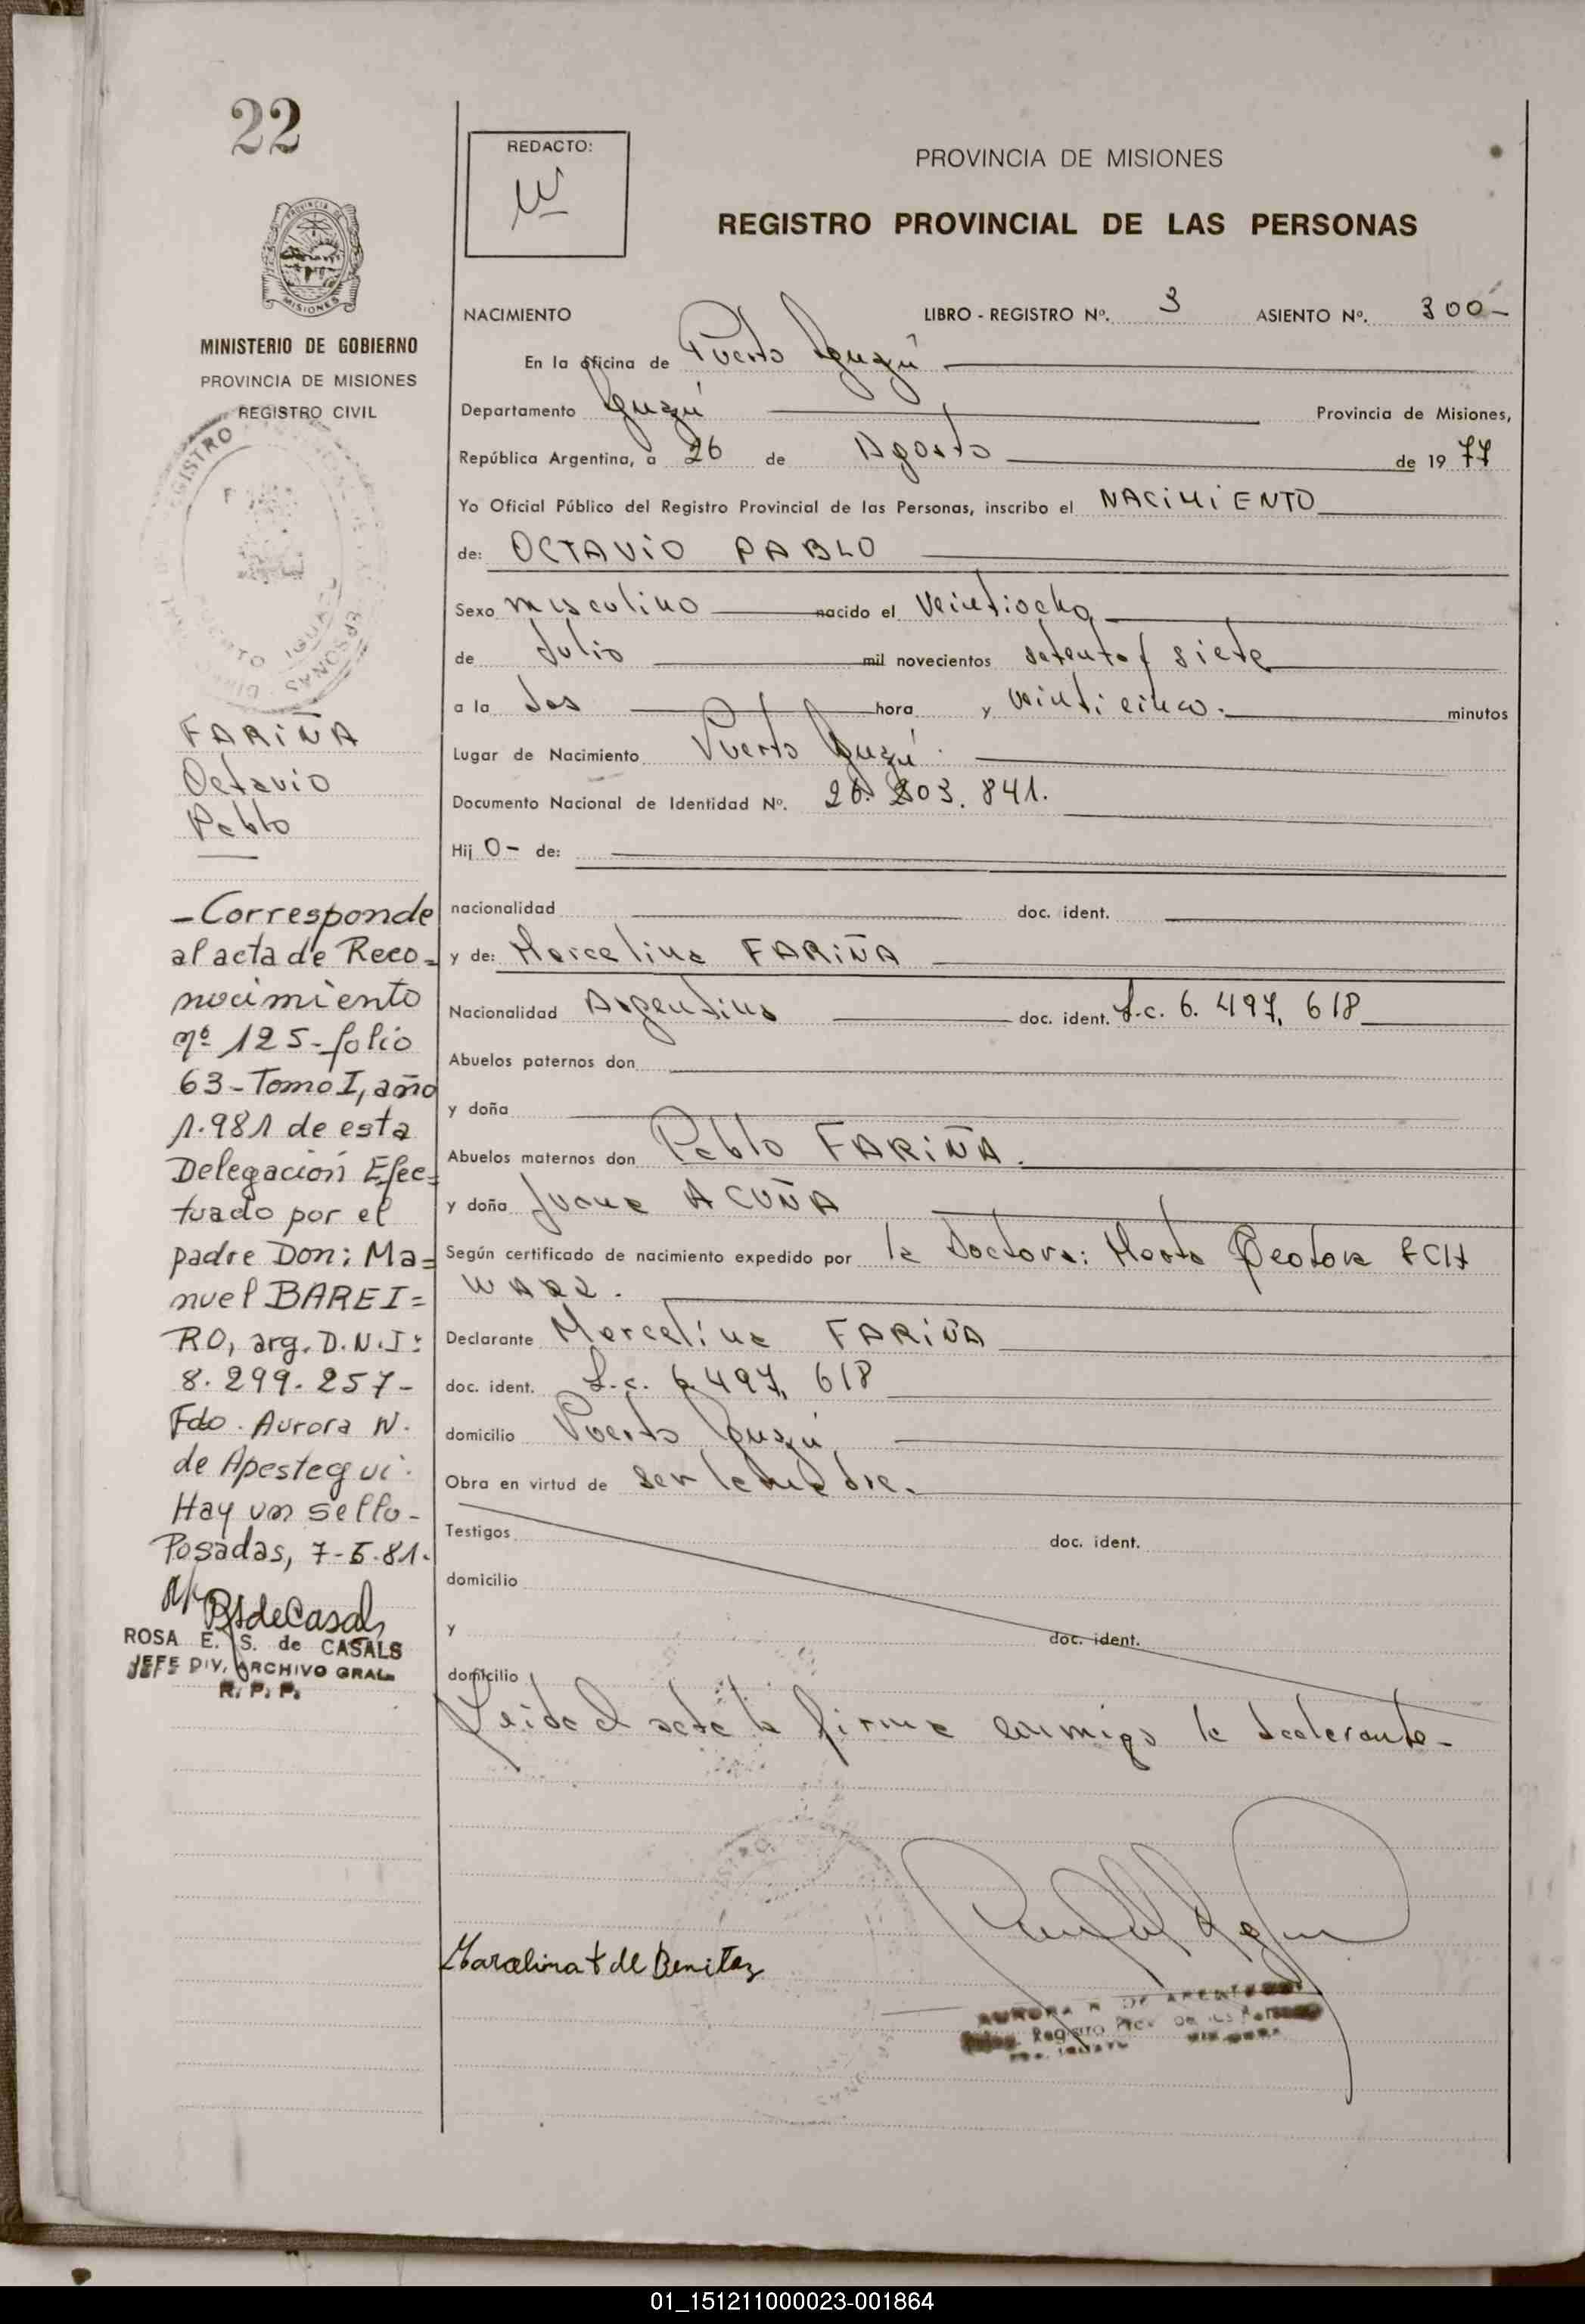 22
REDACTO:
PROVINCIA DE MISIONES
REGISTRO PROVINCIAL DE LAS PERSONAS
MINISTERIO DE GOBIERNO
PROVINCIA DE MISIONES
REGISTRO CIVIL
FARIÑA
Octavio
Pablo
- Corresponde
al acta de Reco=
nocimiento
nº 125- folio
63- Tomo I, año
1.981 de esta
Delegación Efec=
tuado por el
padre Don: Ma=
nuel BAREI=
RO, arg. D.N.I:
8.299.257-
Fdo. Aurora N.
de Apestegui.
Hay un sello-
Posadas, 7-5-81.
ROSA E. S. de CASALS
JEFE DIV. ARCHIVO GRAL.
R. P. P.
NACIMIENTO LIBRO - REGISTRO Nº. 3 ASIENTO Nº. 300-
En la oficina de Puerto Iguazú
Departamento Iguazú Provincia de Misiones,
República Argentina, a 26 de Agosto de 1977
Yo Oficial Público del Registro Provincial de las Personas, inscribo el NACIMIENTO
de: OCTAVIO PABLO
Sexo masculino nacido el veintiocho
de Julio mil novecientos setenta y siete
a la dos hora y veinticinco. minutos
Lugar de Nacimiento Puerto Iguazú.
Documento Nacional de Identidad Nº. 26.203.841.
Hij O- de:
nacionalidad doc. ident.
y de: Marcelina FARIÑA
Nacionalidad Argentina doc. ident. L.c. 6.497.618
Abuelos paternos don
y doña
Abuelos maternos don Pablo FARIÑA.
y doña Juana ACUÑA
Según certificado de nacimiento expedido por la Doctora: Marta
Declarante Marcelina FARIÑA
doc. ident. L.c. 6.497.618
domicilio Puerto Iguazú
Obra en virtud de ser la madre.
Testigos doc. ident.
domicilio
y doc. ident.
domicilio
Leida el acta la firma conmigo la declarante-
Marcelina F de Benitez
01_151211000023-001864